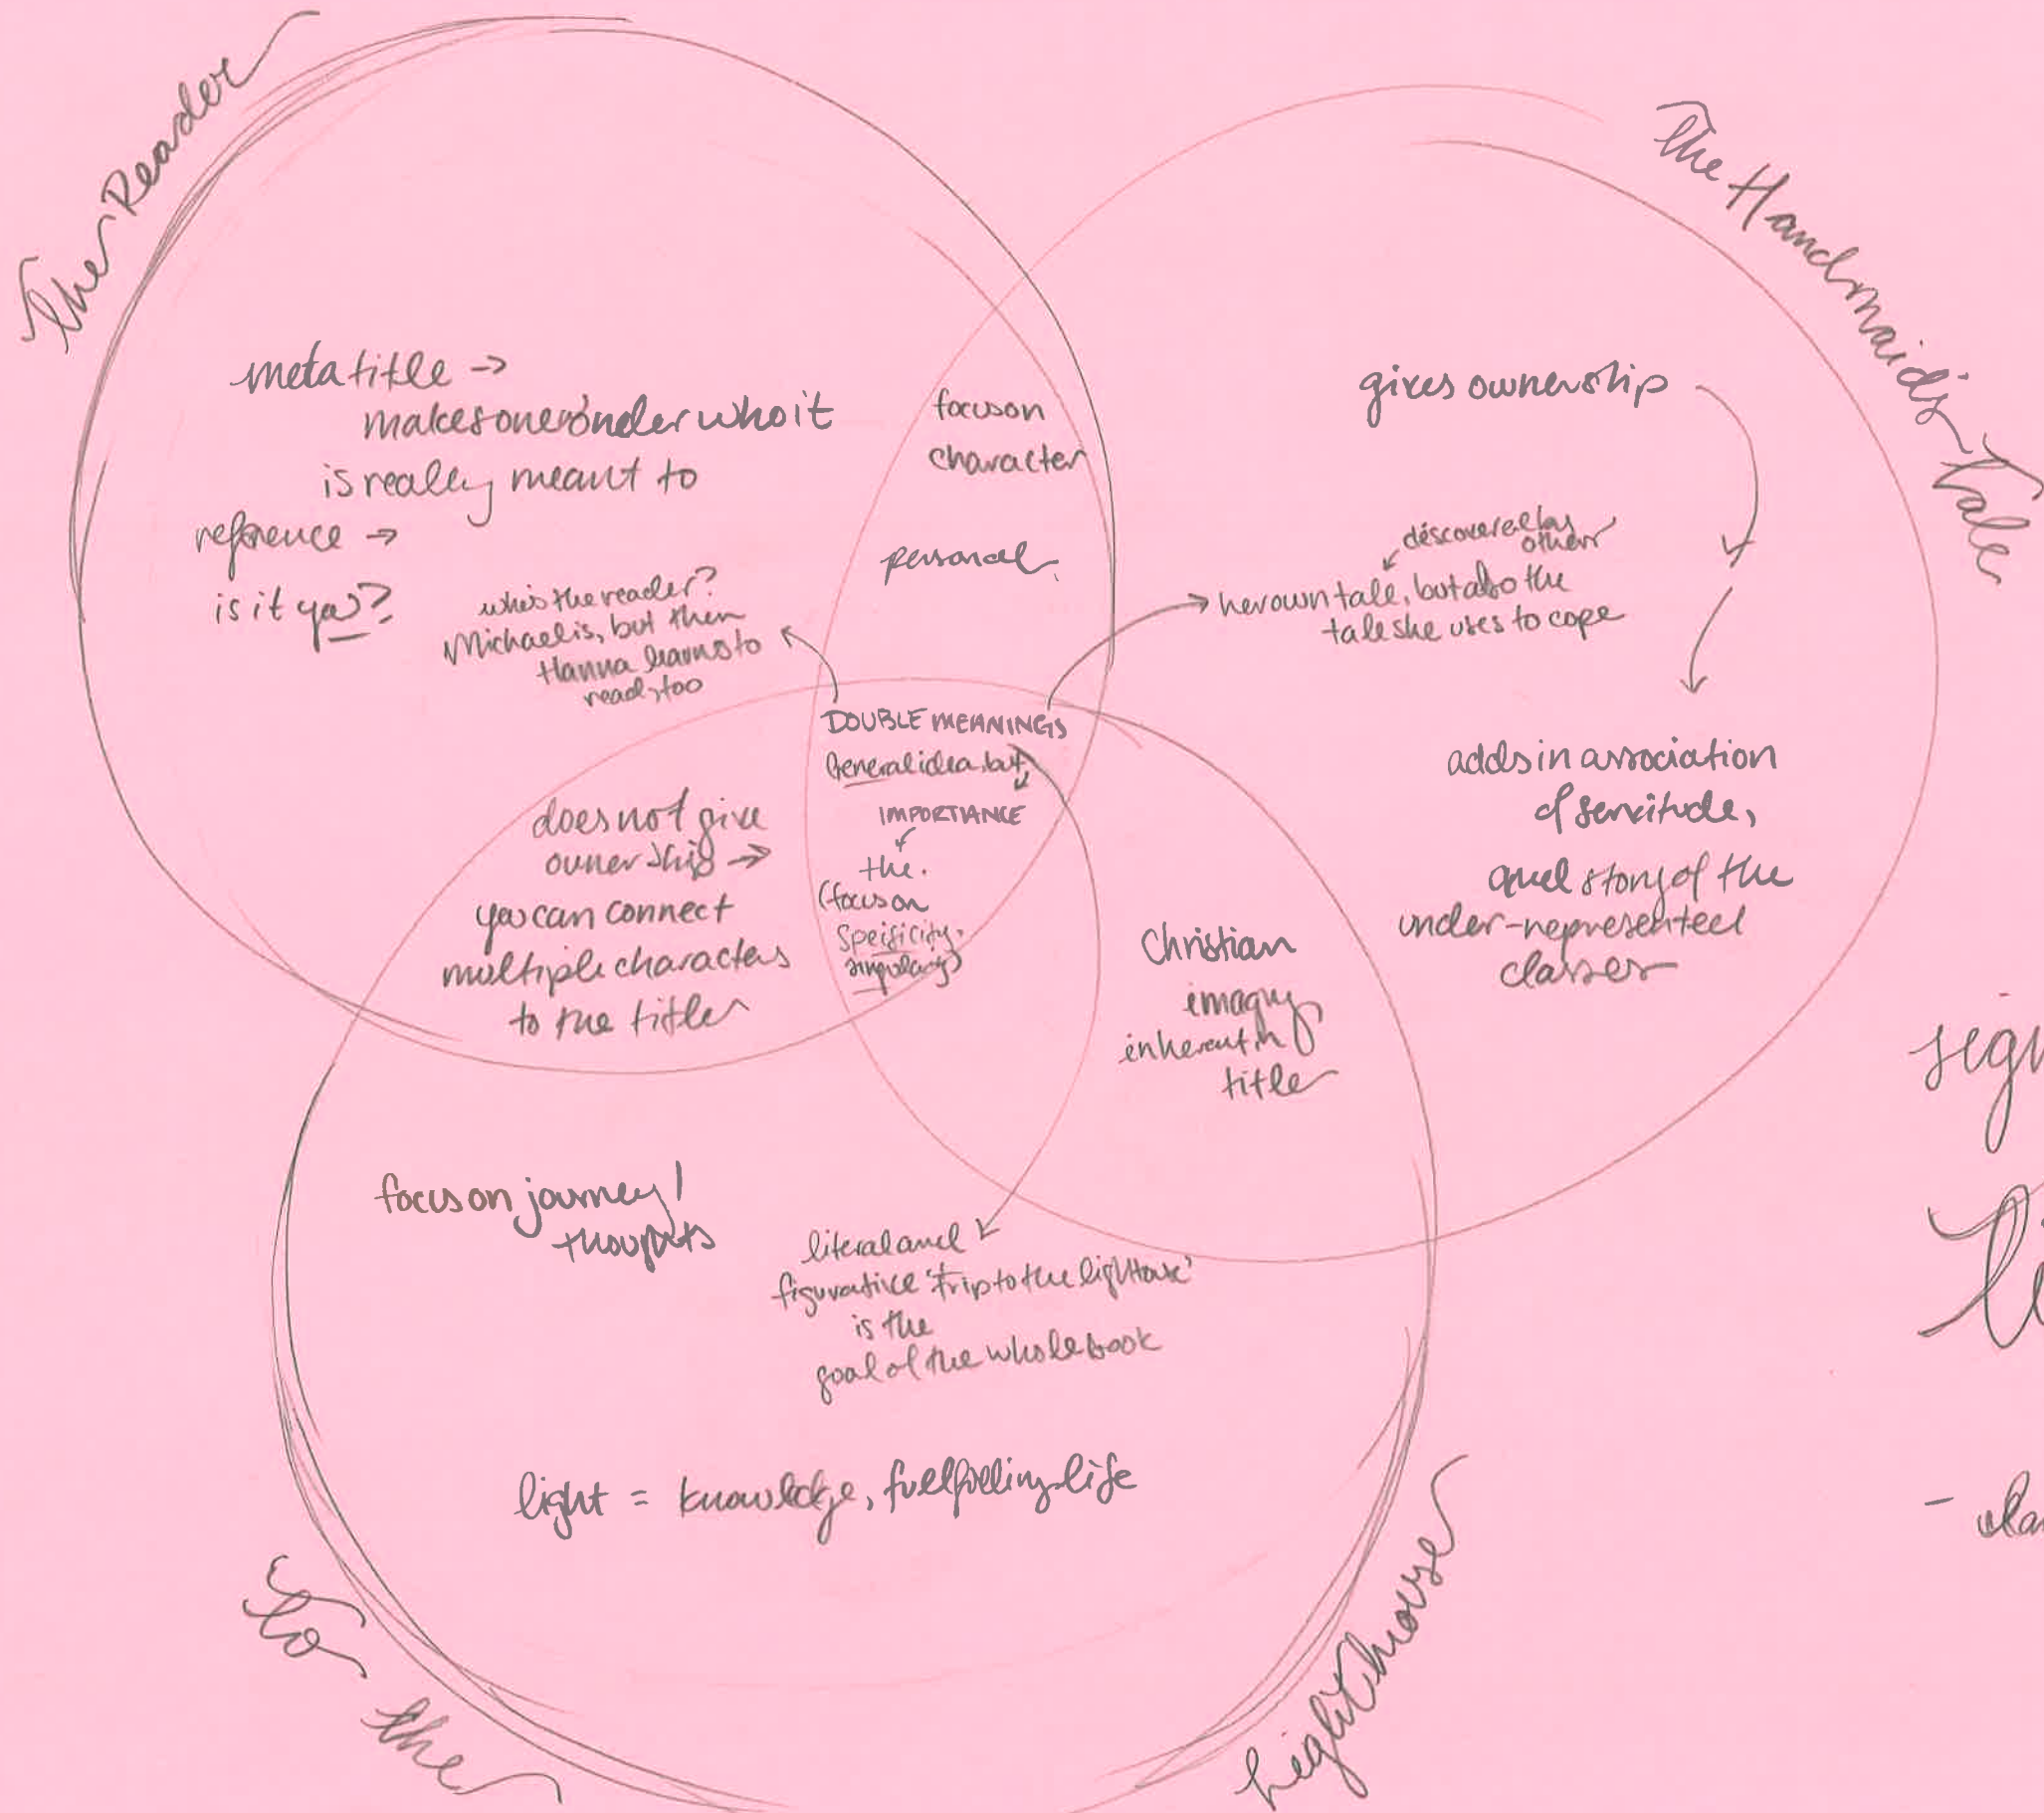 The Reader
The Handmaid's Tale
meta title →
makes one wonder who it
is really meant to
reference →
is it you?
who's the reader?
Michael is, but then
Hanna learns to
read, too
focus on
character
personal
gives ownership
discovered by
others
her own tale, but also the
tale she uses to cope
adds in association
of servitude,
and story of the
under-represented
classes
DOUBLE MEANINGS
General idea, but
IMPORTANCE
the.
(focus on
speificity,
singularity)
does not give
ownership →
you can connect
multiple characters
to the title
Christian
imagry
inherent in
title
focus on journey/
thoughts
literal and
figurative 'trip to the lighthouse'
is the
goal of the whole book
light = knowledge, fuelfueling life
To the
Lighthouse